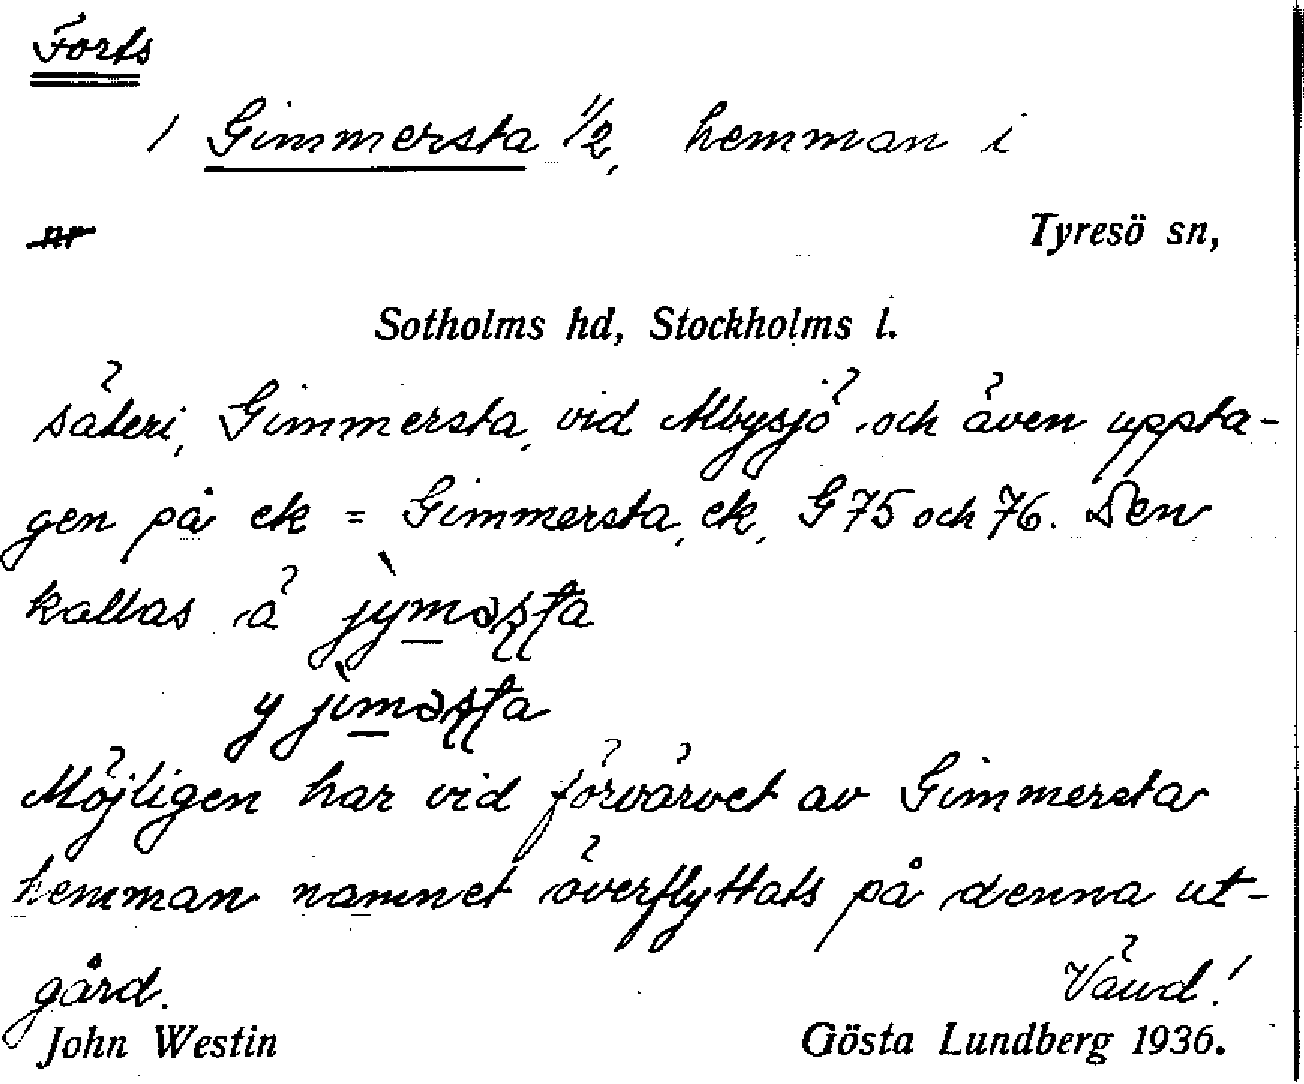 Forts
/ Gimmersta 1/2, hemman i
nr
Tyresö sn,
Sotholms hd, Stockholms l.
säteri, Gimmersta, vid Albysjö och även uppta-
gen på ek = Gimmersta, ek, G 75 och 76. Den
kallas ä
y
Möjligen har vid förvärvet av Gimmersta
hemman namnet överflyttats på denna ut-
gård.
Vänd!
John Westin
Gösta Lundberg 1936.